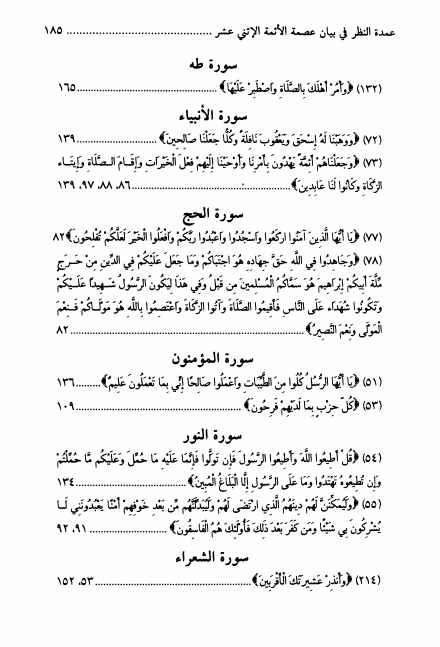 عمدة النظر في بيان عصمة الأئمة الإثني عشر ........................................ ١٨٥
سورة طه
(١٣٢) ﴿وَأْمُرْ أَهْلَكَ بِالصَّلَاةِ وَاصْطَبِرْ عَلَيْهَا﴾ ........................................ ١٦٥
سورة الأنبياء
(٧٢) ﴿وَوَهَبْنَا لَهُ إِسْحَقَ وَيَعْقُوبَ نَافِلَةً وَكُلًّا جَعَلْنَا صَالِحِينَ﴾ ........................ ١٣٩
(٧٣) ﴿وَجَعَلْنَاهُمْ أَئِمَّةً يَهْدُونَ بِأَمْرِنَا وَأَوْحَيْنَا إِلَيْهِمْ فِعْلَ الْخَيْرَاتِ وَإِقَامَ الصَّلَاةِ وَإِيتَاء
الزَّكَاةِ وَكَانُوا لَنَا عَابِدِينَ﴾ ........................................ ٨٦، ٨٨، ٩٧، ١٣٩
سورة الحج
(٧٧) ﴿يَا أَيُّهَا الَّذِينَ آمَنُوا ارْكَعُوا وَاسْجُدُوا وَاعْبُدُوا رَبَّكُمْ وَافْعَلُوا الْخَيْرَ لَعَلَّكُمْ تُفْلِحُونَ﴾ ٨٢
(٧٨) ﴿وَجَاهِدُوا فِي اللَّهِ حَقَّ جِهَادِهِ هُوَ اجْتَبَاكُمْ وَمَا جَعَلَ عَلَيْكُمْ فِي الدِّينِ مِنْ حَرَجٍ
مِّلَّةَ أَبِيكُمْ إِبْرَاهِيمَ هُوَ سَمَّاكُمُ الْمُسْلِمينَ مِن قَبْلُ وَفِي هَذَا لِيَكُونَ الرَّسُولُ شَهِيدًا عَلَيْكُمْ
وَتَكُونُوا شُهَدَاء عَلَى النَّاسِ فَأَقِيمُوا الصَّلَاةَ وَآتُوا الزَّكَاةَ وَاعْتَصِمُوا بِاللَّهِ هُوَ مَوْلَاكُمْ فَنِعْمَ
الْمَوْلَى وَنِعْمَ النَّصِيرُ﴾ ........................................ ٨٢
سورة المؤمنون
(٥١) ﴿يَا أَيُّهَا الرُّسُلُ كُلُوا مِنَ الطَّيِّبَاتِ وَاعْمَلُوا صَالِحًا إِنِّي بِمَا تَعْمَلُونَ عَلِيمٌ﴾ ......... ١٣٦
(٥٣) ﴿كُلُّ حِزْبٍ بِمَا لَدَيْهِمْ فَرِحُونَ﴾ ........................................ ١٠٩
سورة النور
(٥٤) ﴿قُلْ أَطِيعُوا اللَّهَ وَأَطِيعُوا الرَّسُولَ فَإِن تَوَلَّوا فَإِنَّمَا عَلَيْهِ مَا حُمِّلَ وَعَلَيْكُم مَّا حُمِّلْتُمْ
وَإِن تُطِيعُوهُ تَهْتَدُوا وَمَا عَلَى الرَّسُولِ إِلَّا الْبَلَاغُ الْمُبِينُ﴾ ........................ ١٣٤
(٥٥) ﴿وَلَيُمَكِّنَنَّ لَهُمْ دِينَهُمُ الَّذِي ارْتَضَى لَهُمْ وَلَيُبَدِّلَنَّهُم مِّن بَعْدِ خَوْفِهِمْ أَمْنًا يَعْبُدُونَنِي لَا
يُشْرِكُونَ بِي شَيْئًا وَمَن كَفَرَ بَعْدَ ذَلِكَ فَأُوْلَئِكَ هُمُ الْفَاسِقُونَ﴾ .................. ٩١، ٩٢
سورة الشعراء
(٢١٤) ﴿وَأَنذِرْ عَشِيرَتَكَ الْأَقْرَبِينَ﴾ ........................................ ٥٣، ١٥٢